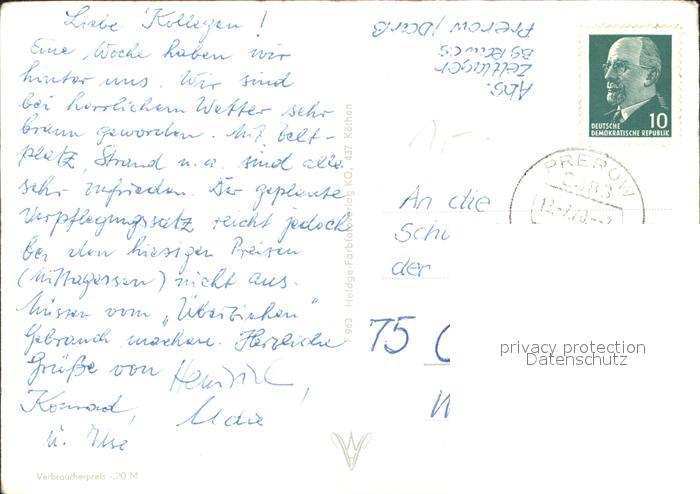 Liebe Kollegen!
Eine Woche haben wir
hinter uns. Wir sind
bei herrlichem Wetter sehr
braun geworden. Mit Zelt-
platz, Strand u.a. sind alle
sehr zufrieden. Der geplante
Verpflegungssatz reicht jedoch
bei den hiesigen Preisen
(Mittagessen) nicht aus.
Müssen vom "Überziehen"
Gebrauch machen. Herzliche
Grüße von Heinrich,
Konrad,
u. Ilse
Verbraucherpreis -,20 M
F 963 Heldge-Farbfoto-Verlag KG, 437 Köthen
Abs.
Zeltlager
Prerow/Darß
15.-
DEUTSCHE
DEMOKRATISCHE REPUBLIK
10
PREROW
2383
An die
Schu
der
75 C
privacy protection
Datenschutz